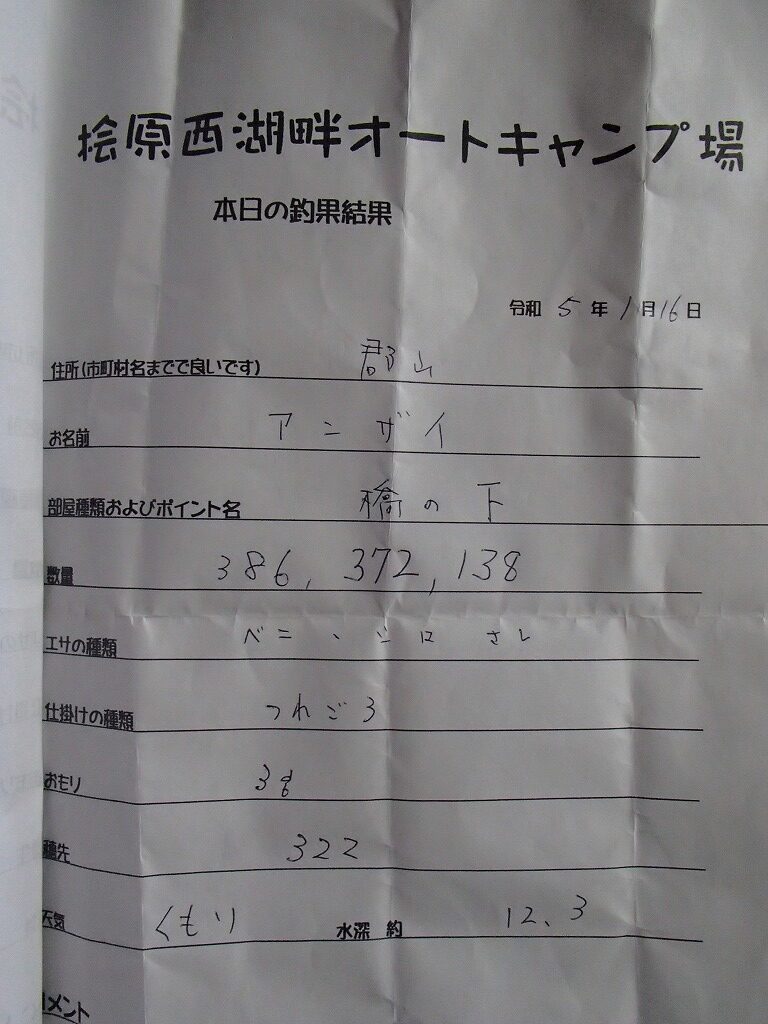 桧原西湖畔オートキャンプ場
本日の釣果結果
令和 5 年 1月16日
住所(市町村名までで良いです) 郡山
お名前 アンザイ
部屋種類およびポイント名 橋の下
数量 386, 372, 138
エサの種類 ベニ、シロ さし
仕掛けの種類 つれごろ
おもり 3g
穂先 322
天気 くもり 水深 約 12.3
コメント